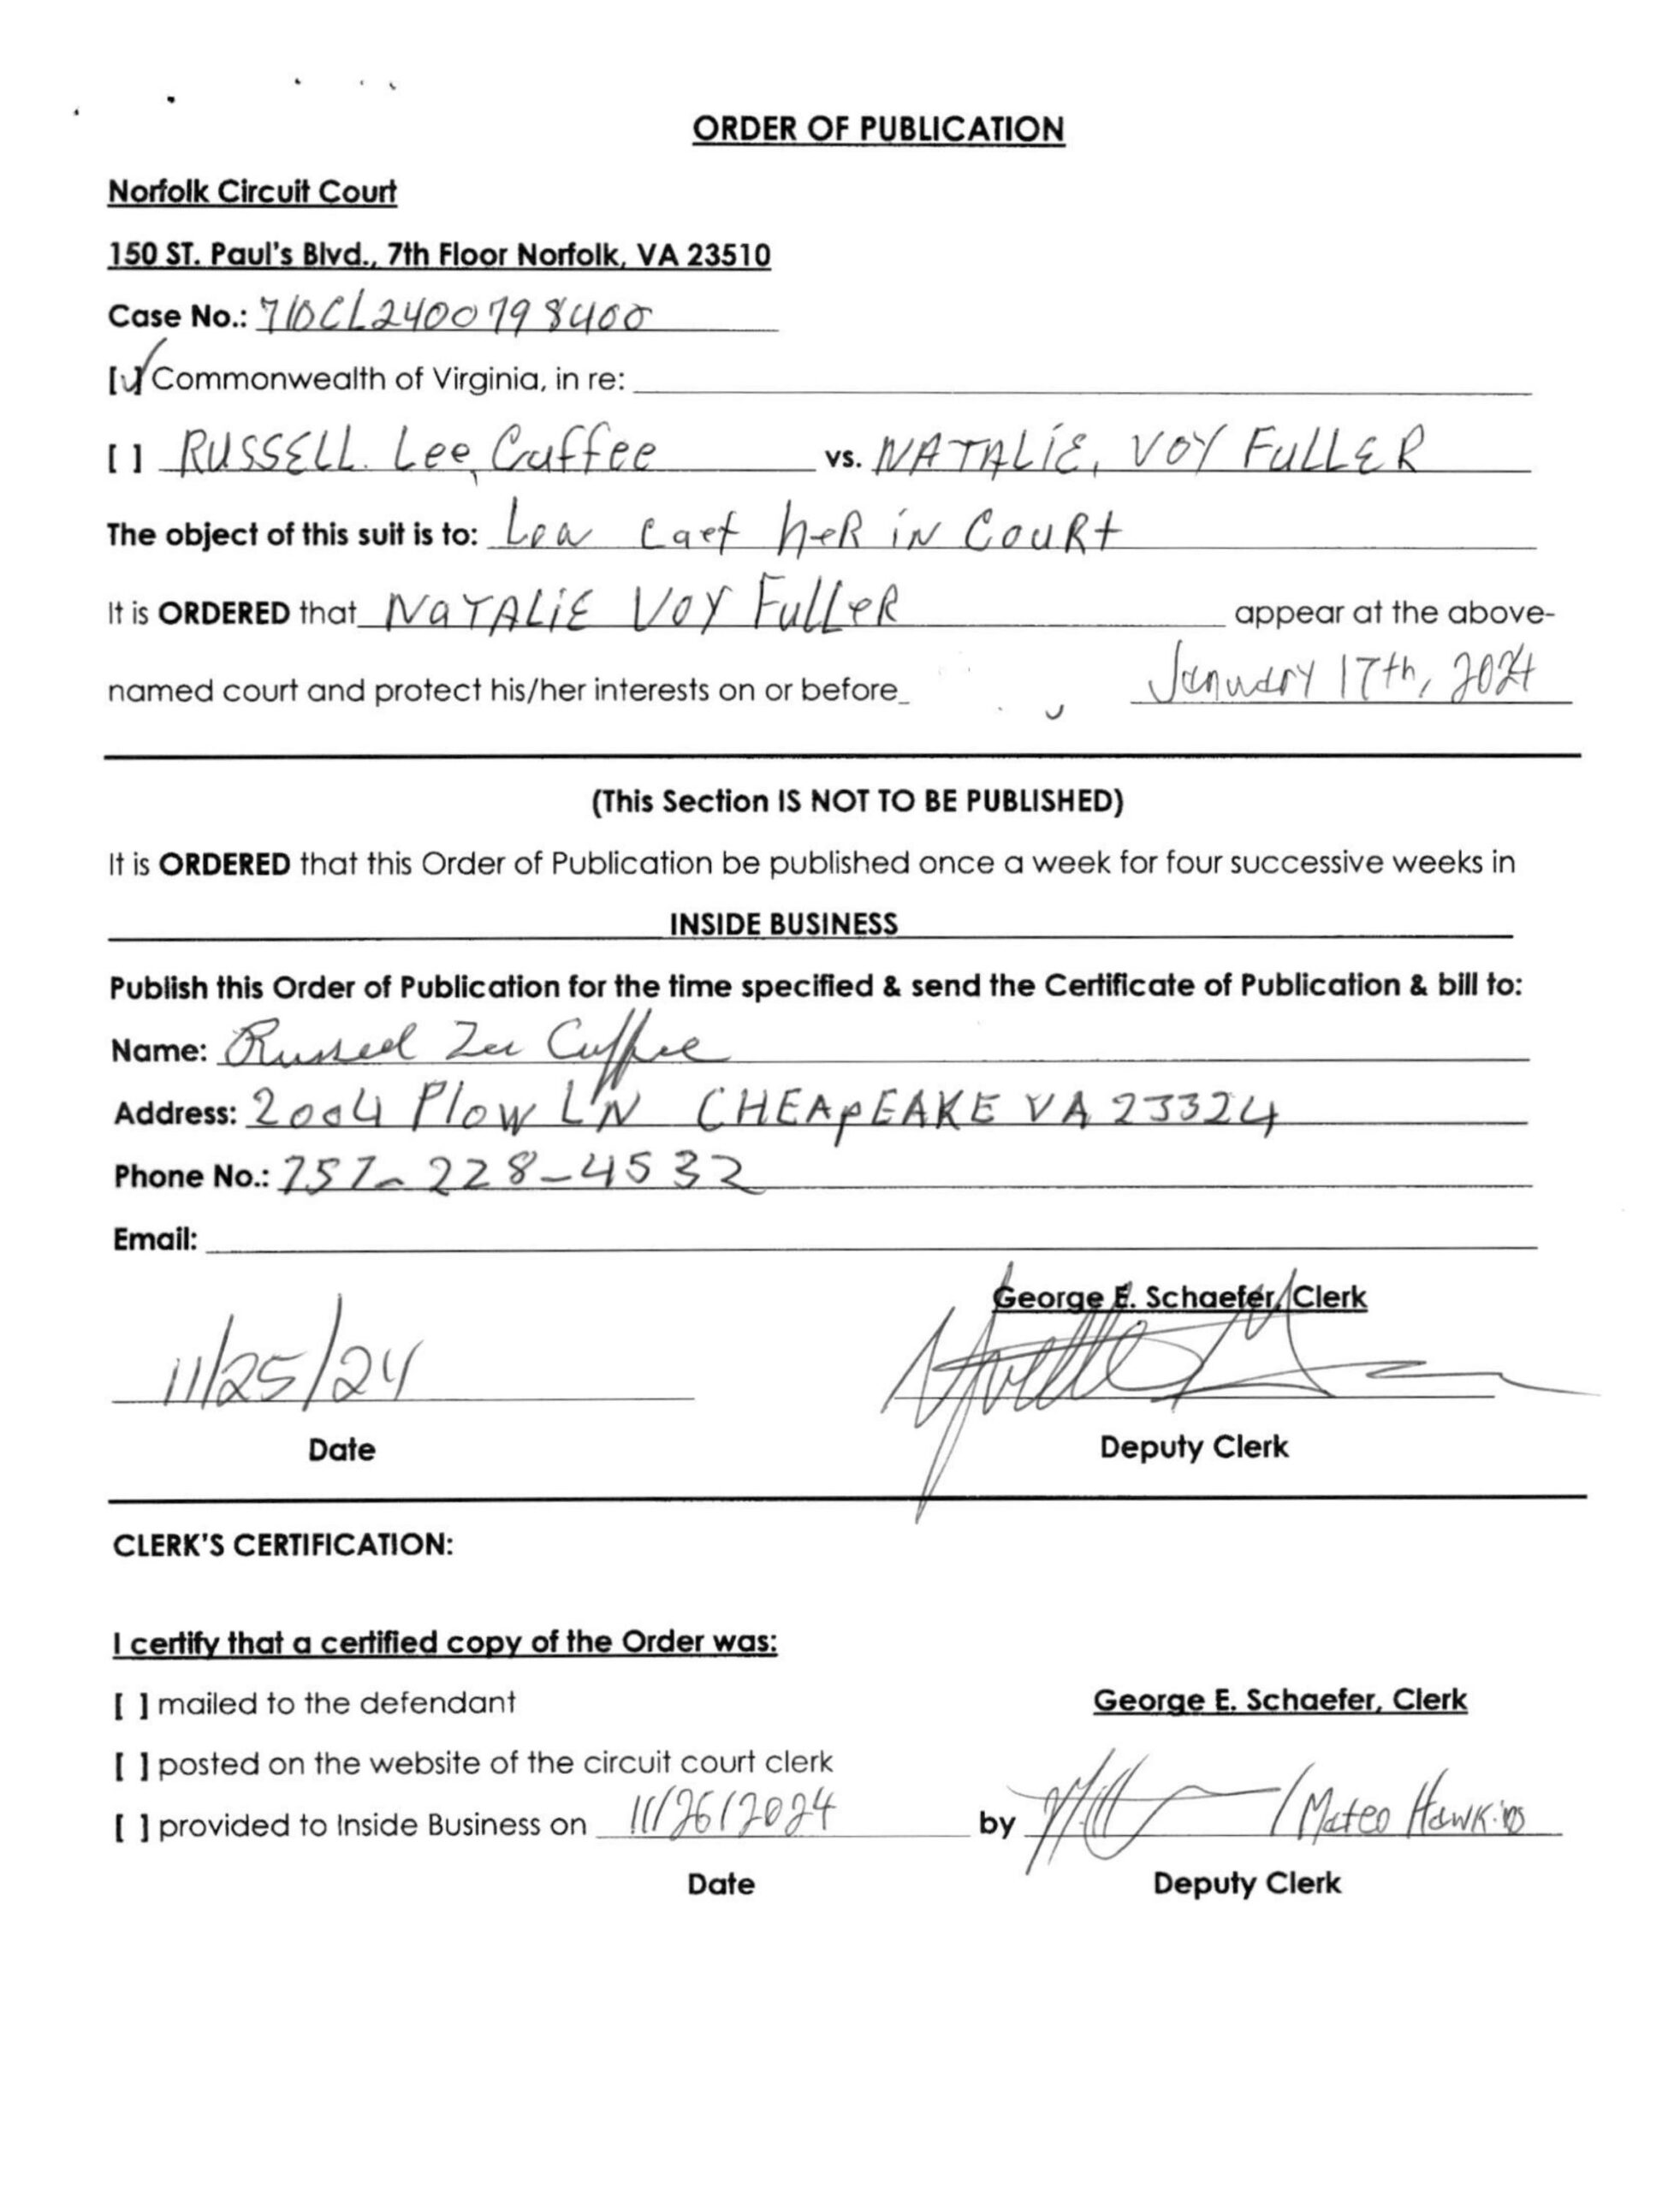 ORDER OF PUBLICATION
Norfolk Circuit Court
150 ST. Paul's Blvd., 7th Floor Norfolk, VA 23510
Case No.: 710CL2400798400
[✓] Commonwealth of Virginia, in re:
[ ] RUSSELL Lee Cuffee vs. NATALIE, VOY FULLER
The object of this suit is to: her in Court
It is ORDERED that NaTALIE VOY FulleR appear at the above-
named court and protect his/her interests on or before January 17th, 2024
(This Section IS NOT TO BE PUBLISHED)
It is ORDERED that this Order of Publication be published once a week for four successive weeks in
INSIDE BUSINESS
Publish this Order of Publication for the time specified & send the Certificate of Publication & bill to:
Name: Russell Lee Cuffee
Address: 2004 Plow LN CHEApEAKE VA 23324
Phone No.: 757-228-4532
Email:
George E. Schaefer, Clerk
11/25/24
Date Deputy Clerk
CLERK'S CERTIFICATION:
I certify that a certified copy of the Order was:
[ ] mailed to the defendant George E. Schaefer, Clerk
[ ] posted on the website of the circuit court clerk
[ ] provided to Inside Business on 11/26/2024 by / Mateo Hawkins
Date Deputy Clerk